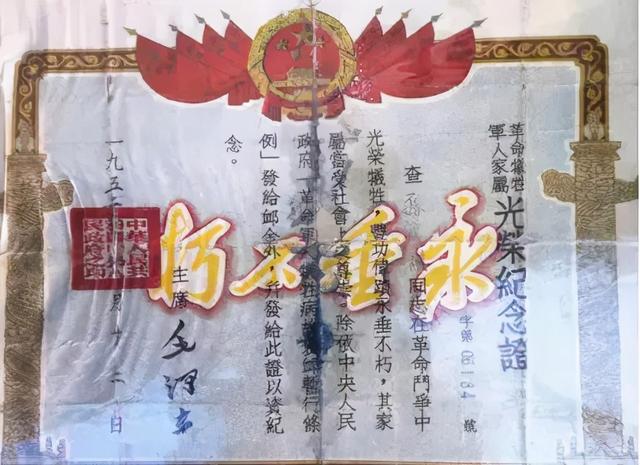 革命犧牲
軍人家屬
光榮紀念證
字第 號
查 同志在革命鬥爭中
光榮犧牲，豐功偉績永垂不朽，其家
屬當受社會上之尊崇。除依中央人民
政府「革命軍人犧牲病故褒恤暫行條
例」發給卹金外並發給此證以資紀
念。
永垂不朽
主席 毛澤東
一九五 月十二日